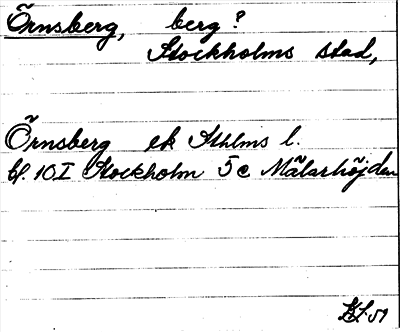 Örnsberg, berg?
Stockholms stad,
Örnsberg ek Sthlms l.
bl. 10 I Stockholm 5c Mälarhöjden